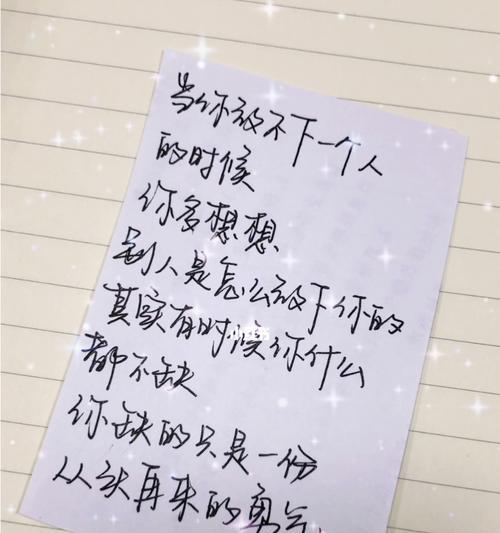 当你放不下一个人
的时候
你多想想
别人是怎么放下你的
真实有时候你什么
都不缺
你缺的只是一份
从头再来的勇气